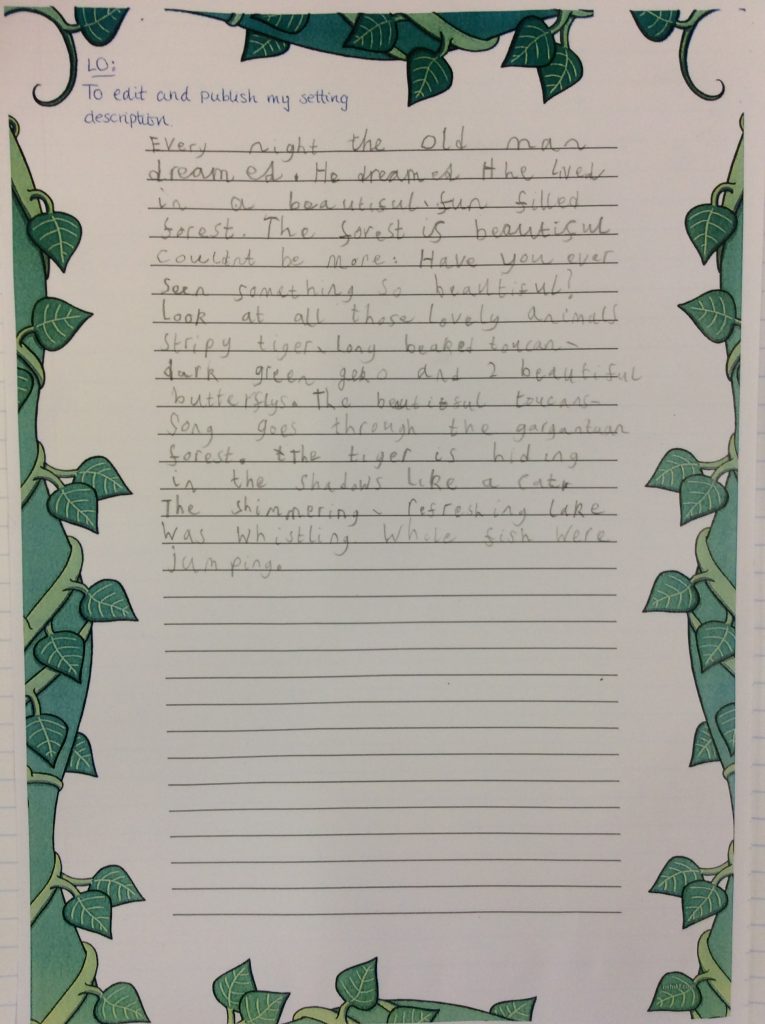 LO:
To edit and publish my setting
description.
Every night the old man
dreamed. He dreamed Hhe lived
in a beautiful, fun filled
forest. The forest is beautiful
couldnt be more. Have you ever
seen something so beautiful?
Look at all those lovely animals
stripy tiger, long beaked toucan,
dark green geko and 2 beautiful
butterflys. The beautiful toucans
song goes through the gargantuan
forest. the tiger is hiding
in the shadows like a cat.
The shimmering, refreshing lake
was whistling while fish were
jumping.